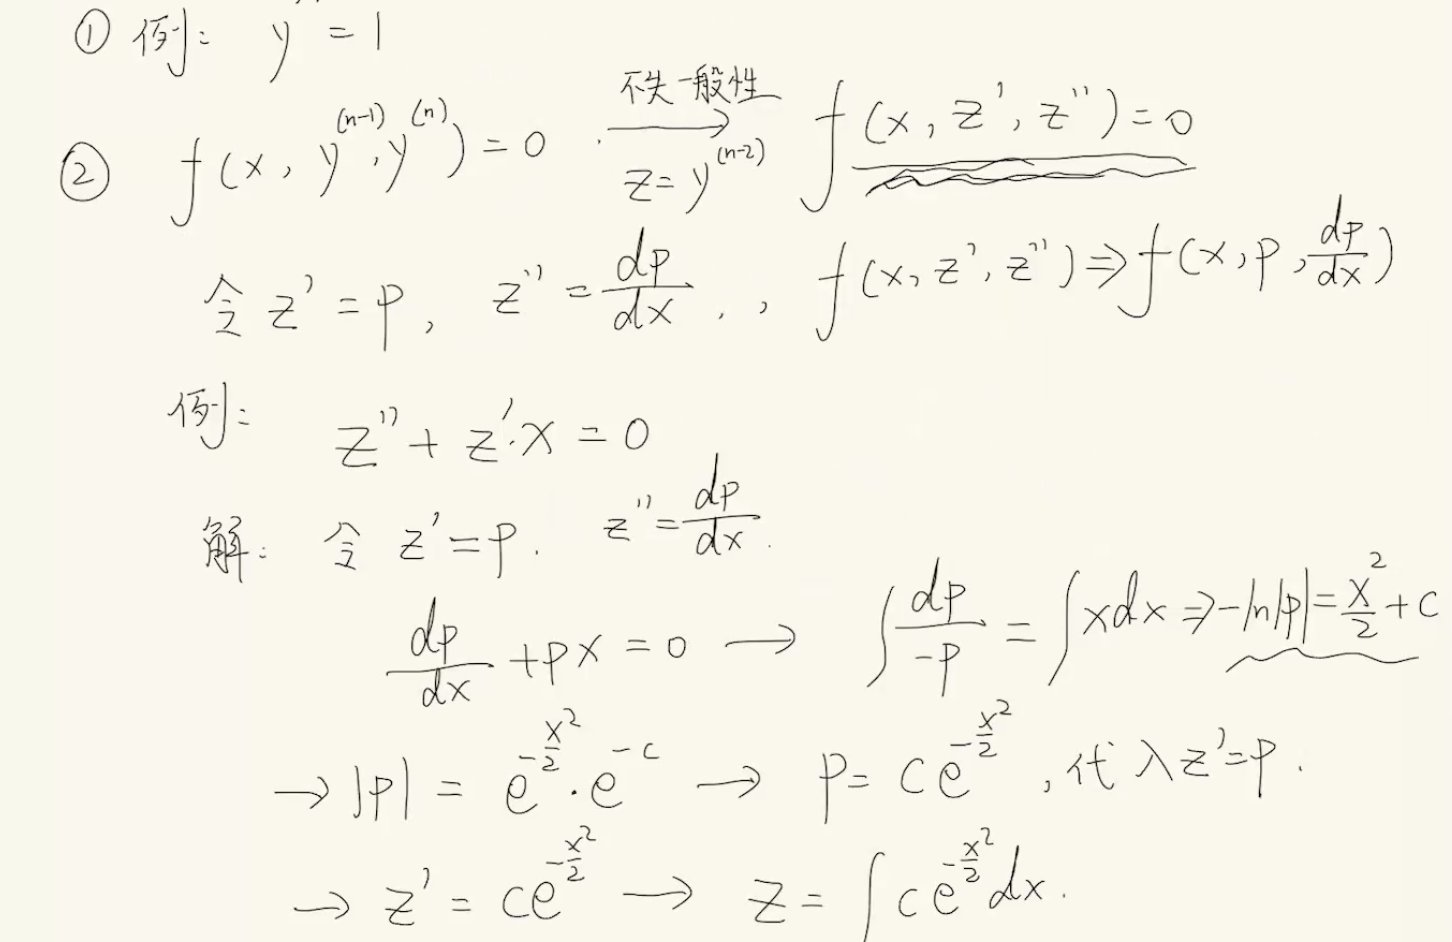 ① 例: y'' = 1
② f(x, y^(n-1), y^(n)) = 0 不失一般性 → z = y^(n-2) f(x, z', z'') = 0
令 z' = p, z'' = dp/dx , , f(x, z', z'') ⇒ f(x, p, dp/dx)
例: z'' + z'·x = 0
解: 令 z' = p. z'' = dp/dx.
dp/dx + px = 0 → ∫ dp/-p = ∫ x dx ⇒ -ln|p| = x²/2 + c
→ |p| = e^(-x²/2) · e^(-c) → p = c e^(-x²/2) , 代入 z' = p.
→ z' = c e^(-x²/2) → z = ∫ c e^(-x²/2) dx.